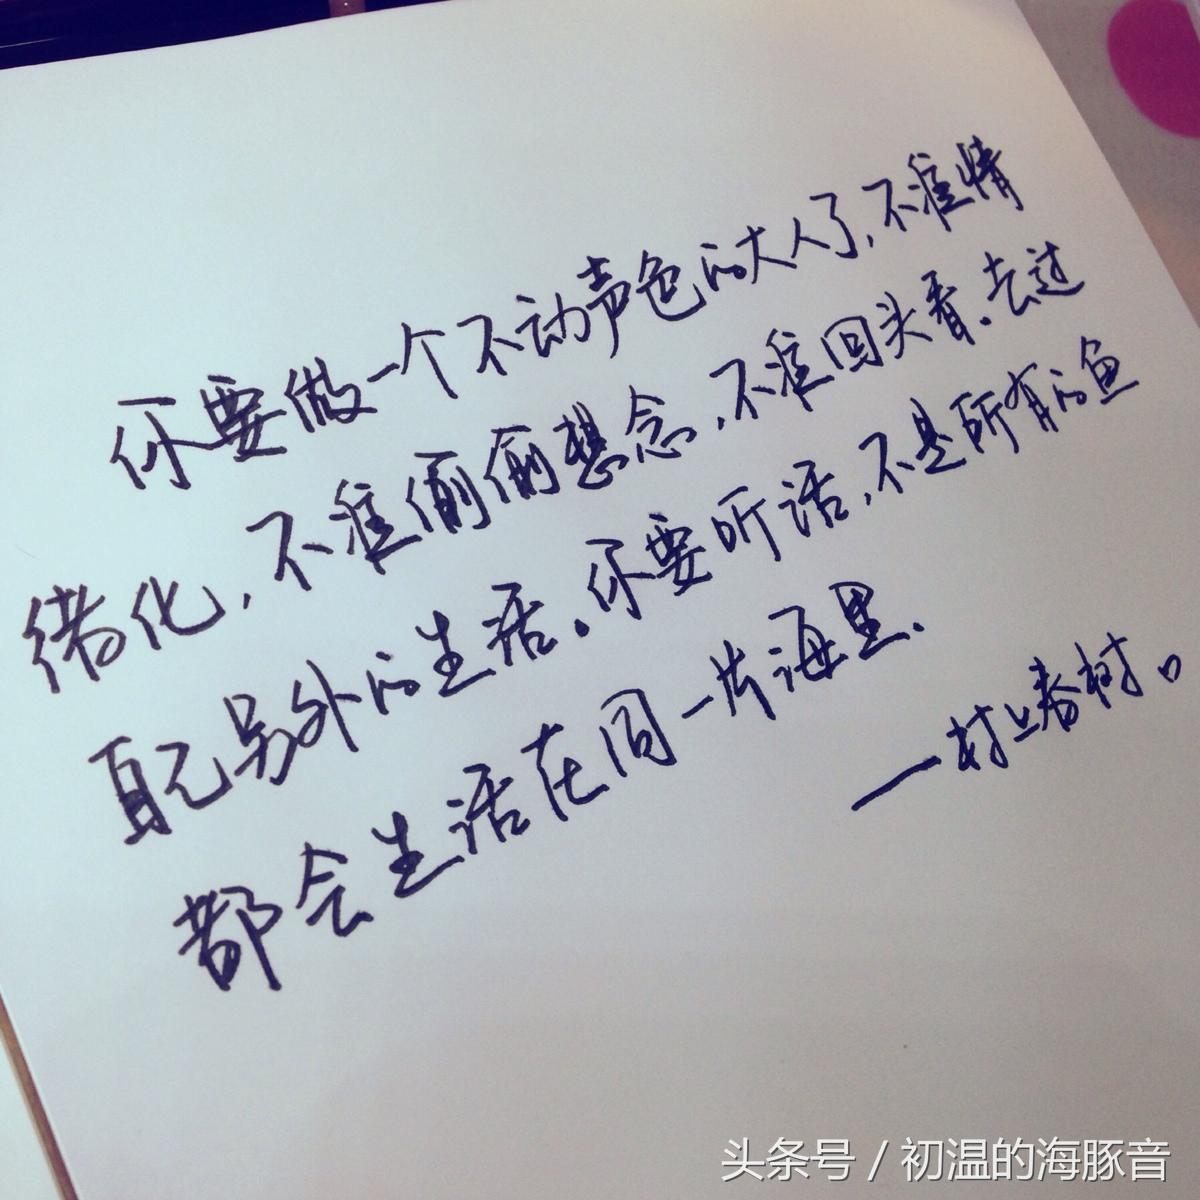 你要做一个不动声色的大人了,不准情
绪化,不准偷偷想念,不准回头看。去过
自己另外的生活。你要听话,不是所有的鱼
都会生活在同一片海里.
——村上春树。
头条号 / 初温的海豚音